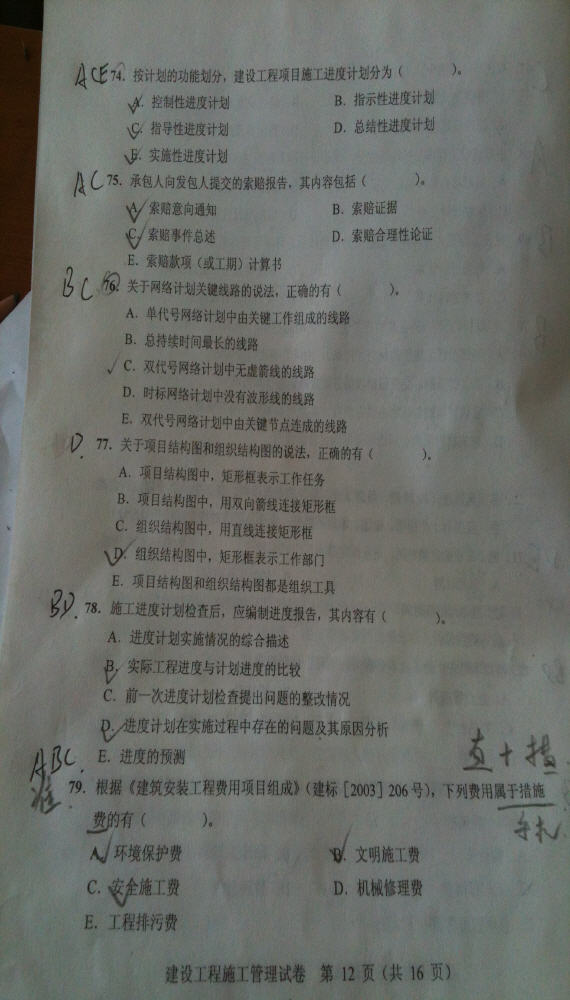 ACE 74. 按计划的功能划分，建设工程项目施工进度计划分为（　　）。
A. 控制性进度计划　B. 指示性进度计划
C. 指导性进度计划　D. 总结性进度计划
E. 实施性进度计划
AC 75. 承包人向发包人提交的索赔报告，其内容包括（　　）。
A. 索赔意向通知　B. 索赔证据
C. 索赔事件总述　D. 索赔合理性论证
E. 索赔款项（或工期）计算书
BC 76. 关于网络计划关键线路的说法，正确的有（　　）。
A. 单代号网络计划中由关键工作组成的线路
B. 总持续时间最长的线路
C. 双代号网络计划中无虚箭线的线路
D. 时标网络计划中没有波形线的线路
E. 双代号网络计划中由关键节点连成的线路
D. 77. 关于项目结构图和组织结构图的说法，正确的有（　　）。
A. 项目结构图中，矩形框表示工作任务
B. 项目结构图中，用双向箭线连接矩形框
C. 组织结构图中，用直线连接矩形框
D. 组织结构图中，矩形框表示工作部门
E. 项目结构图和组织结构图都是组织工具
BD. 78. 施工进度计划检查后，应编制进度报告，其内容有（　　）。
A. 进度计划实施情况的综合描述
B. 实际工程进度与计划进度的比较
C. 前一次进度计划检查提出问题的整改情况
D. 进度计划在实施过程中存在的问题及其原因分析
E. 进度的预测
ABC. 直十措
79. 根据《建筑安装工程费用项目组成》（建标［2003］206号），下列费用属于措施
费的有（　　）。
A. 环境保护费　B. 文明施工费
C. 安全施工费　D. 机械修理费
E. 工程排污费
建设工程施工管理试卷　第 12 页（共 16 页）